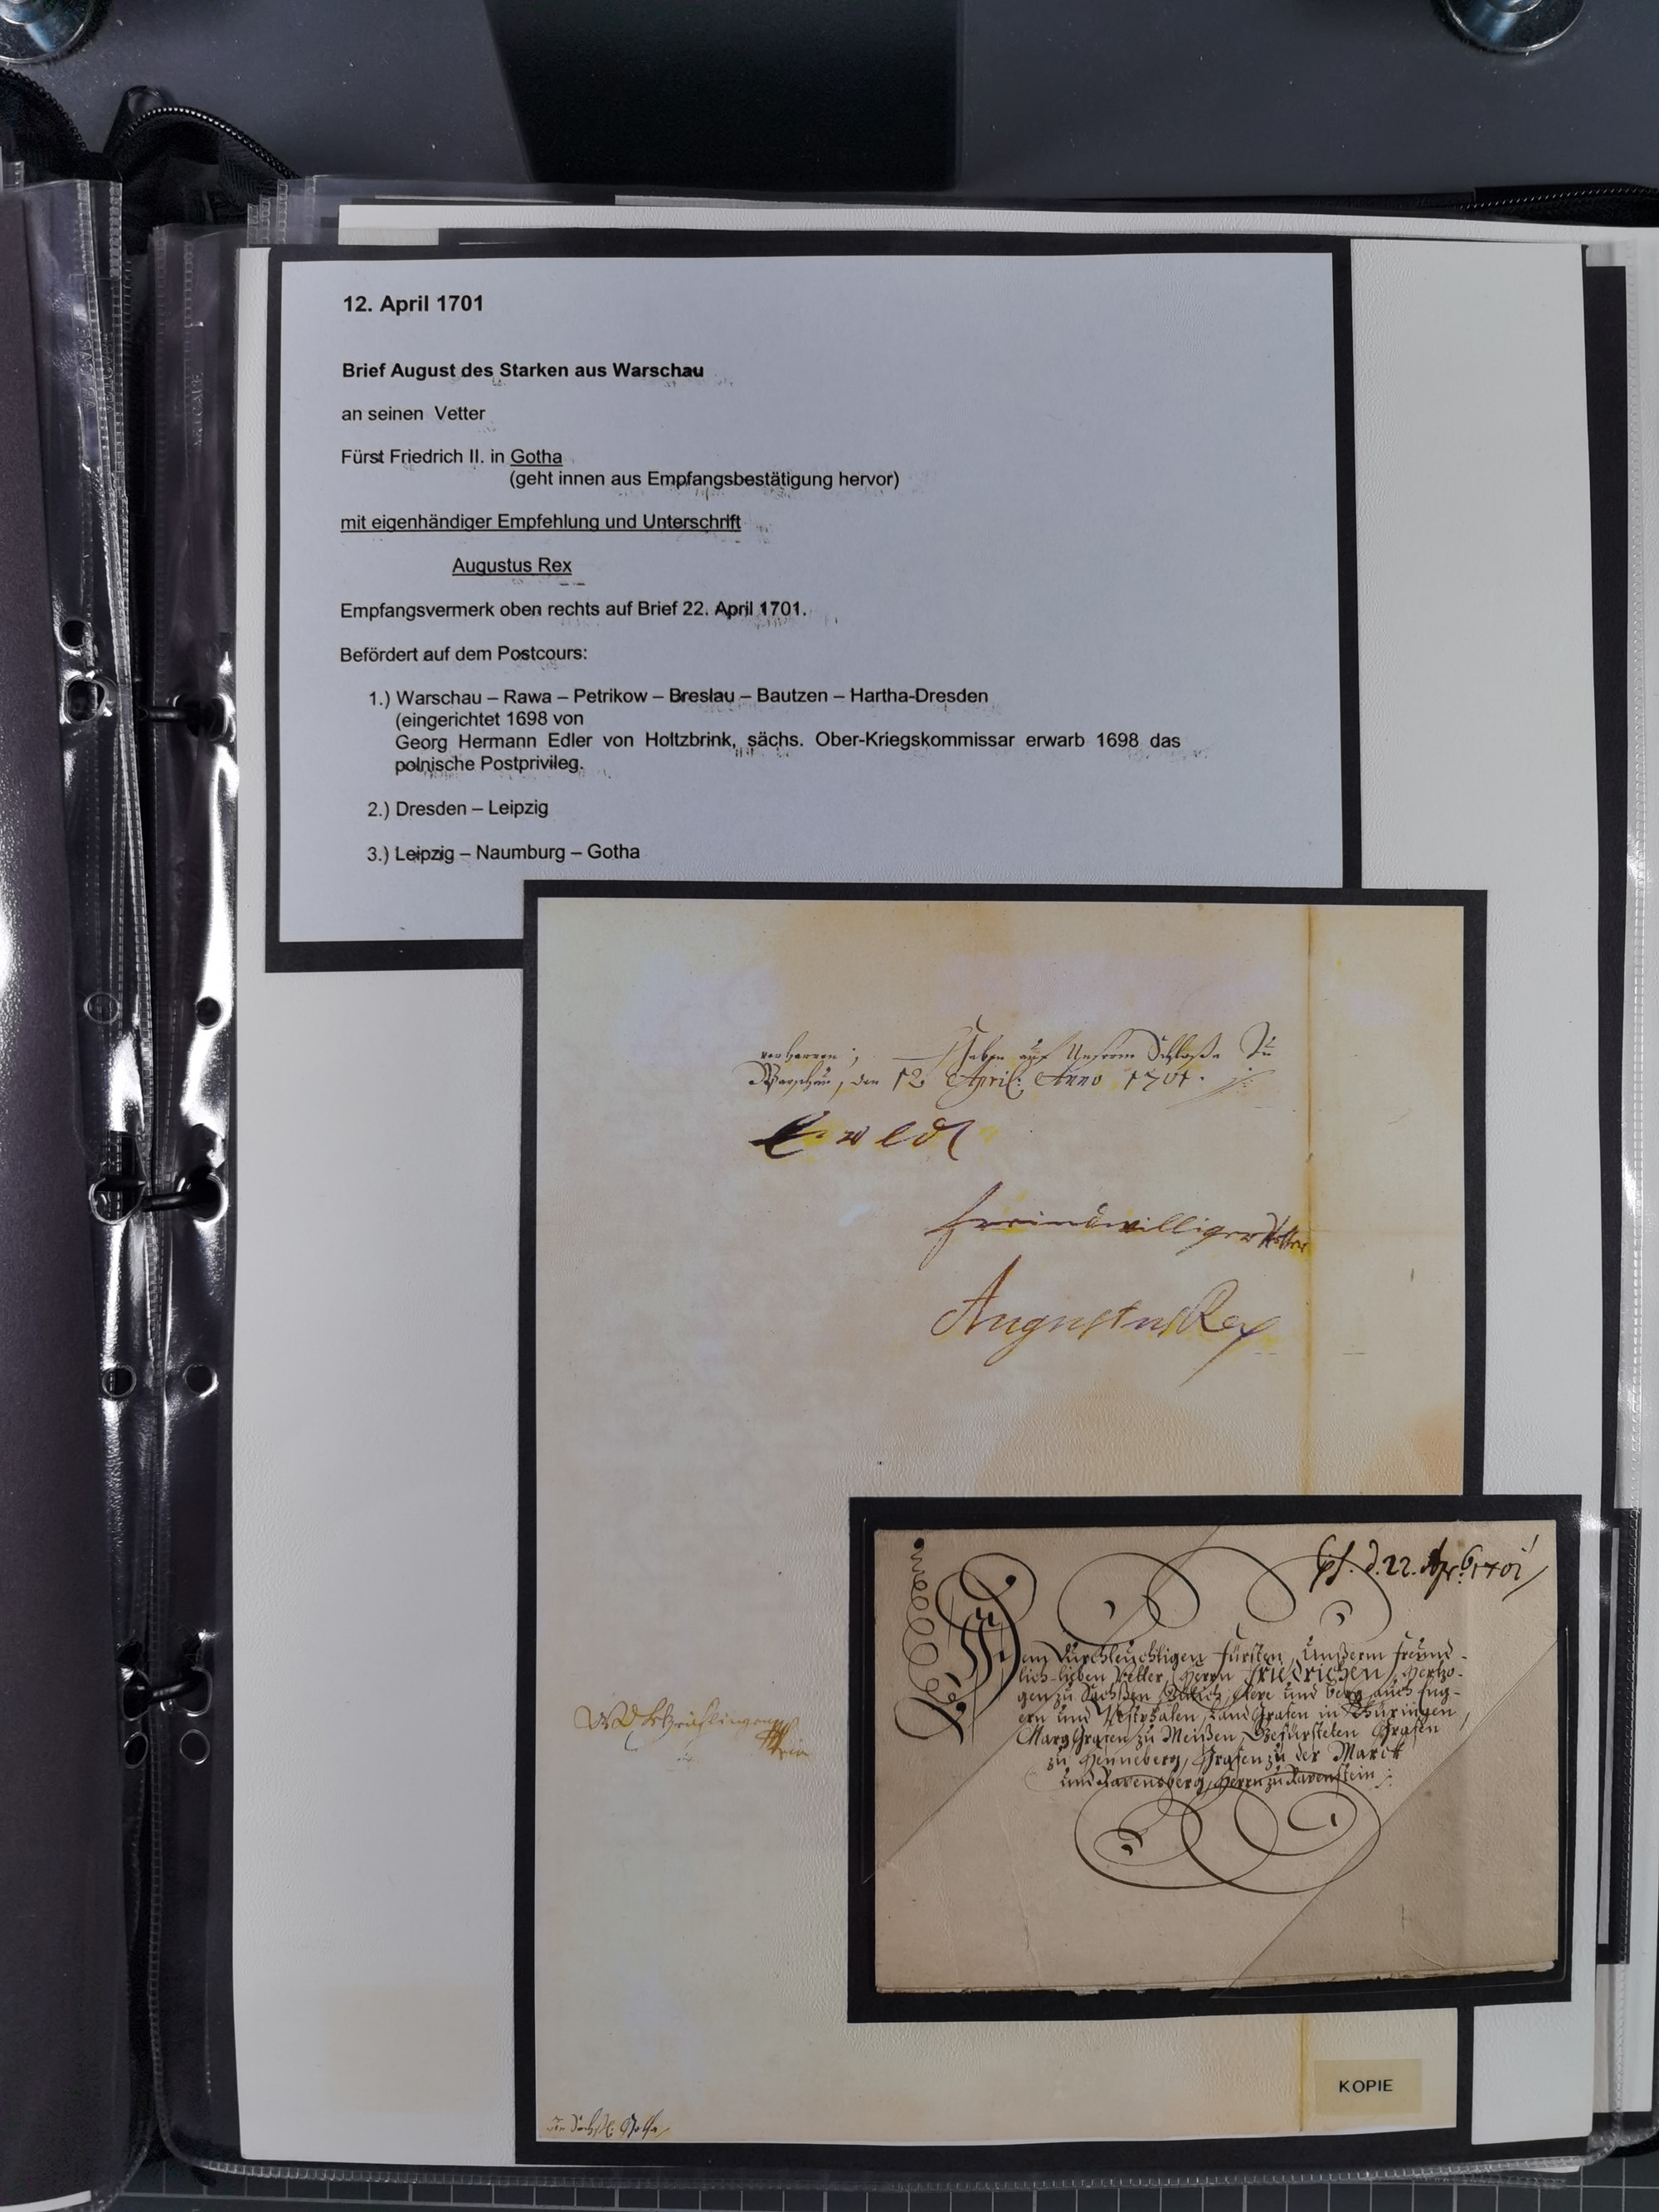 12. April 1701
Brief August des Starken aus Warschau
an seinen Vetter
Fürst Friedrich II. in Gotha
(geht innen aus Empfangsbestätigung hervor)
mit eigenhändiger Empfehlung und Unterschrift
Augustus Rex
Empfangsvermerk oben rechts auf Brief 22. April 1701.
Befördert auf dem Postcours:
1.) Warschau – Rawa – Petrikow – Breslau – Bautzen – Hartha-Dresden
(eingerichtet 1698 von
Georg Hermann Edler von Holtzbrink, sächs. Ober-Kriegskommissar erwarb 1698 das
polnische Postprivileg.
2.) Dresden – Leipzig
3.) Leipzig – Naumburg – Gotha
verharren; Geben auf Unserm Schloße Zu
Warschau, den 12 April: Anno 1701.
freindwilliger Vetter
Augustus Rex
d. 22. Apr. 1701
Dem Durchleuchtigen Fürsten, Unßerm freund-
lich-lieben Vetter, Herrn Friedrichen, Hertzo-
gen zu Sachßen, Jülich, Cleve und Berg, auch Eng-
ern und Westphalen, Land Grafen in Thüringen,
Marg Grafen zu Meißen, Gefürsteten Grafen
zu Henneberg, Grafen zu der Marck
und Ravensberg, Herrn zu Ravenstein
KOPIE
Gotha